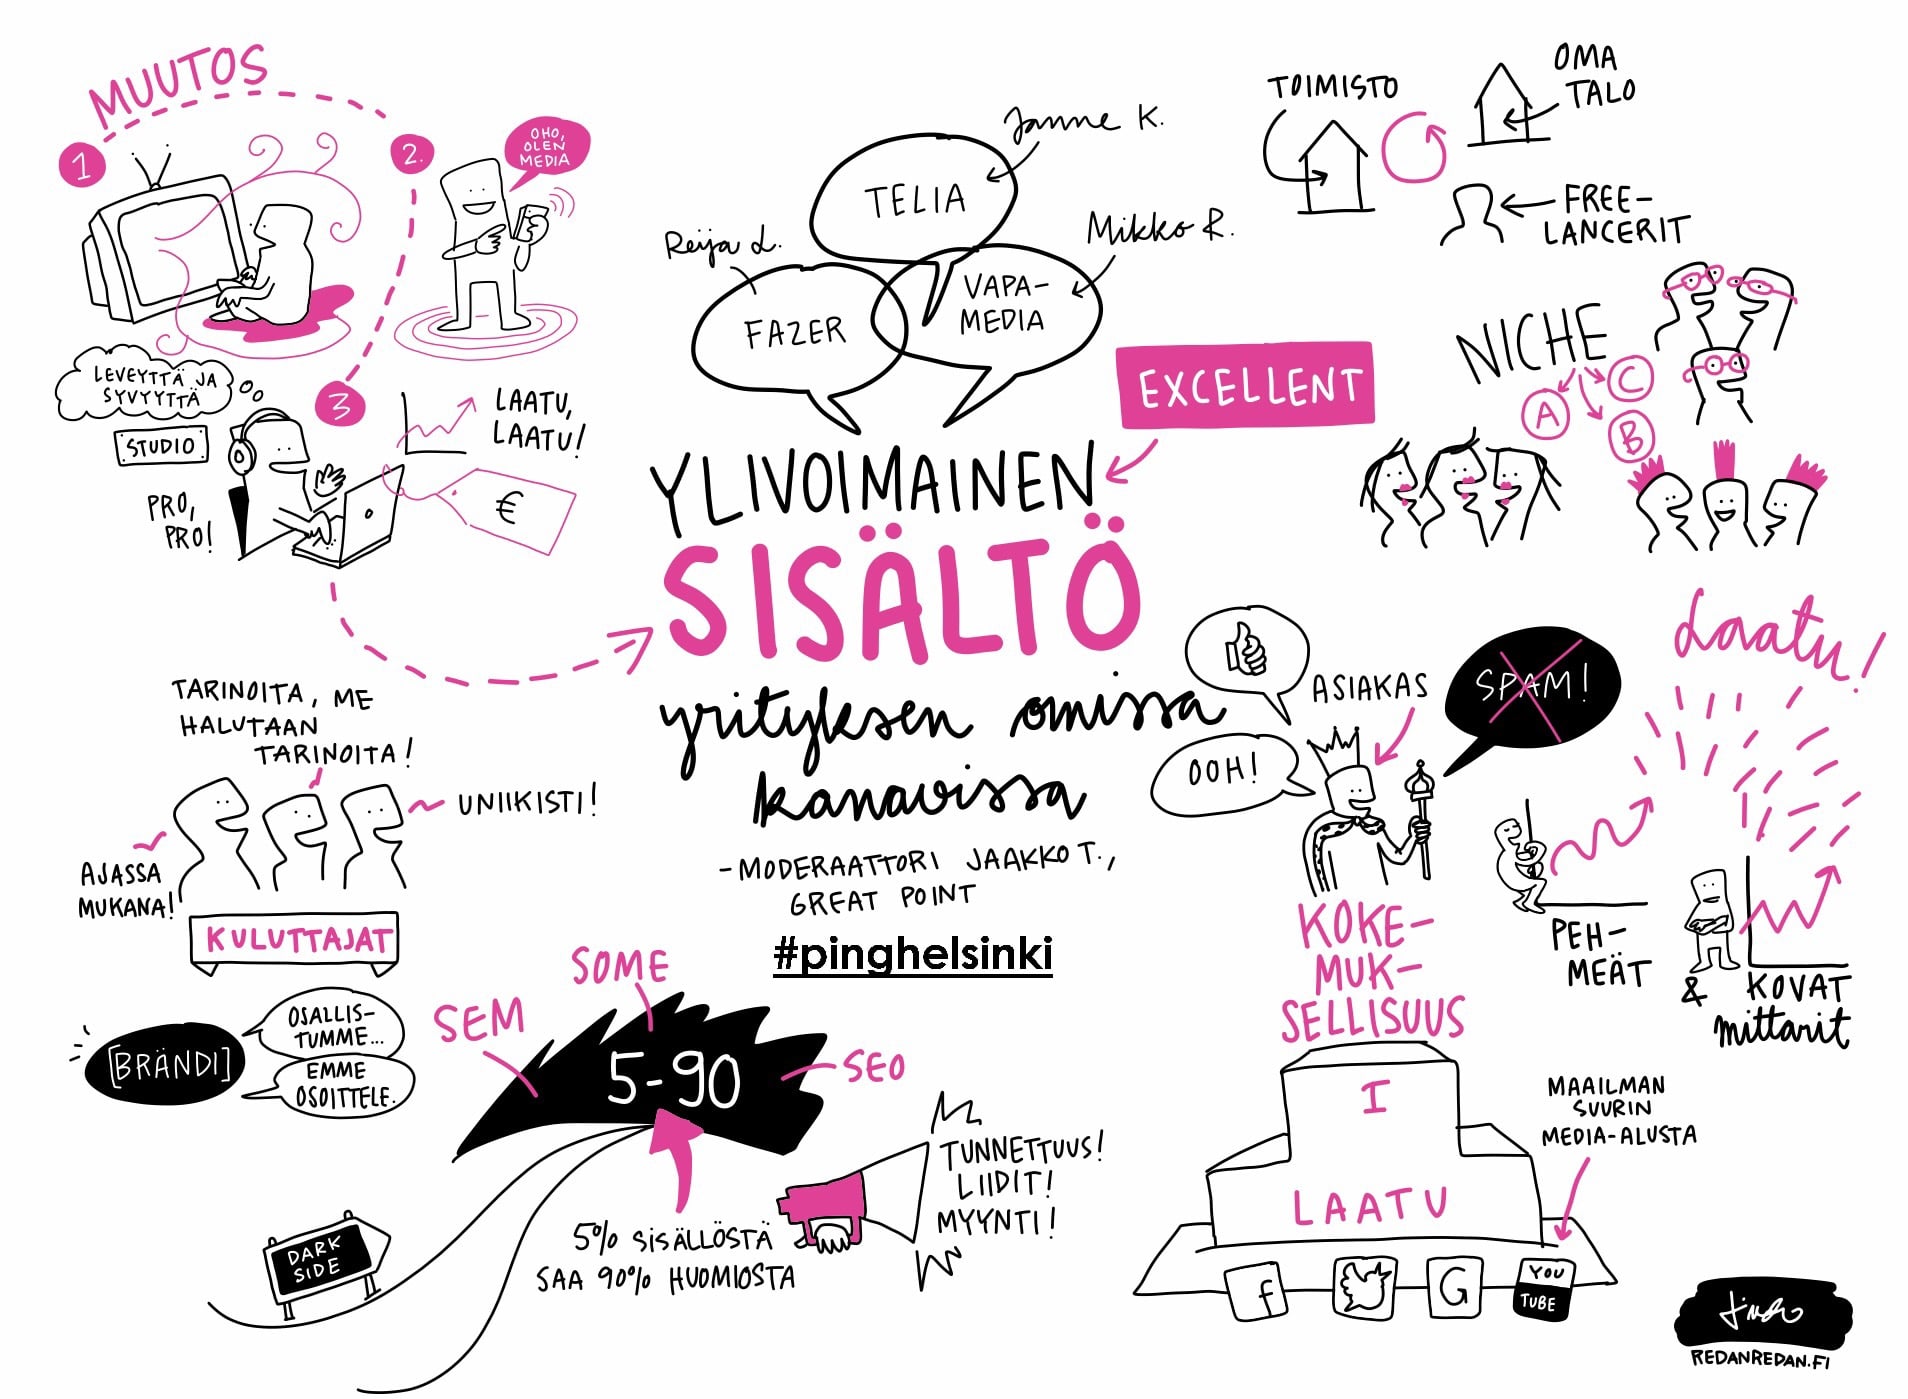 MUUTOS
1
2.
OHO,
OLEN
MEDIA
LEVEYTTÄ JA
SYVYYTTÄ
STUDIO
PRO,
PRO!
3
LAATU,
LAATU!
€
Janne K.
TELIA
Reija L.
FAZER
Mikko R.
VAPA-
MEDIA
EXCELLENT
YLIVOIMAINEN
SISÄLTÖ
yrityksen omissa
kanavissa
-MODERAATTORI JAAKKO T.,
GREAT POINT
#pinghelsinki
TOIMISTO
OMA
TALO
FREE-
LANCERIT
NICHE
A
C
B
TARINOITA, ME
HALUTAAN
TARINOITA!
UNIIKISTI!
AJASSA
MUKANA!
KULUTTAJAT
[BRÄNDI]
OSALLIS-
TUMME...
EMME
OSOITTELE.
SEM
SOME
SEO
5-90
5% SISÄLLÖSTÄ
SAA 90% HUOMIOSTA
DARK
SIDE
TUNNETTUUS!
LIIDIT!
MYYNTI!
ASIAKAS
OOH!
SPAM!
Laatu!
KOKE-
MUK-
SELLISUUS
PEH-
MEÄT
& KOVAT
mittarit
I
LAATU
MAAILMAN
SUURIN
MEDIA-ALUSTA
f
G
YOU
TUBE
REDANREDAN.FI